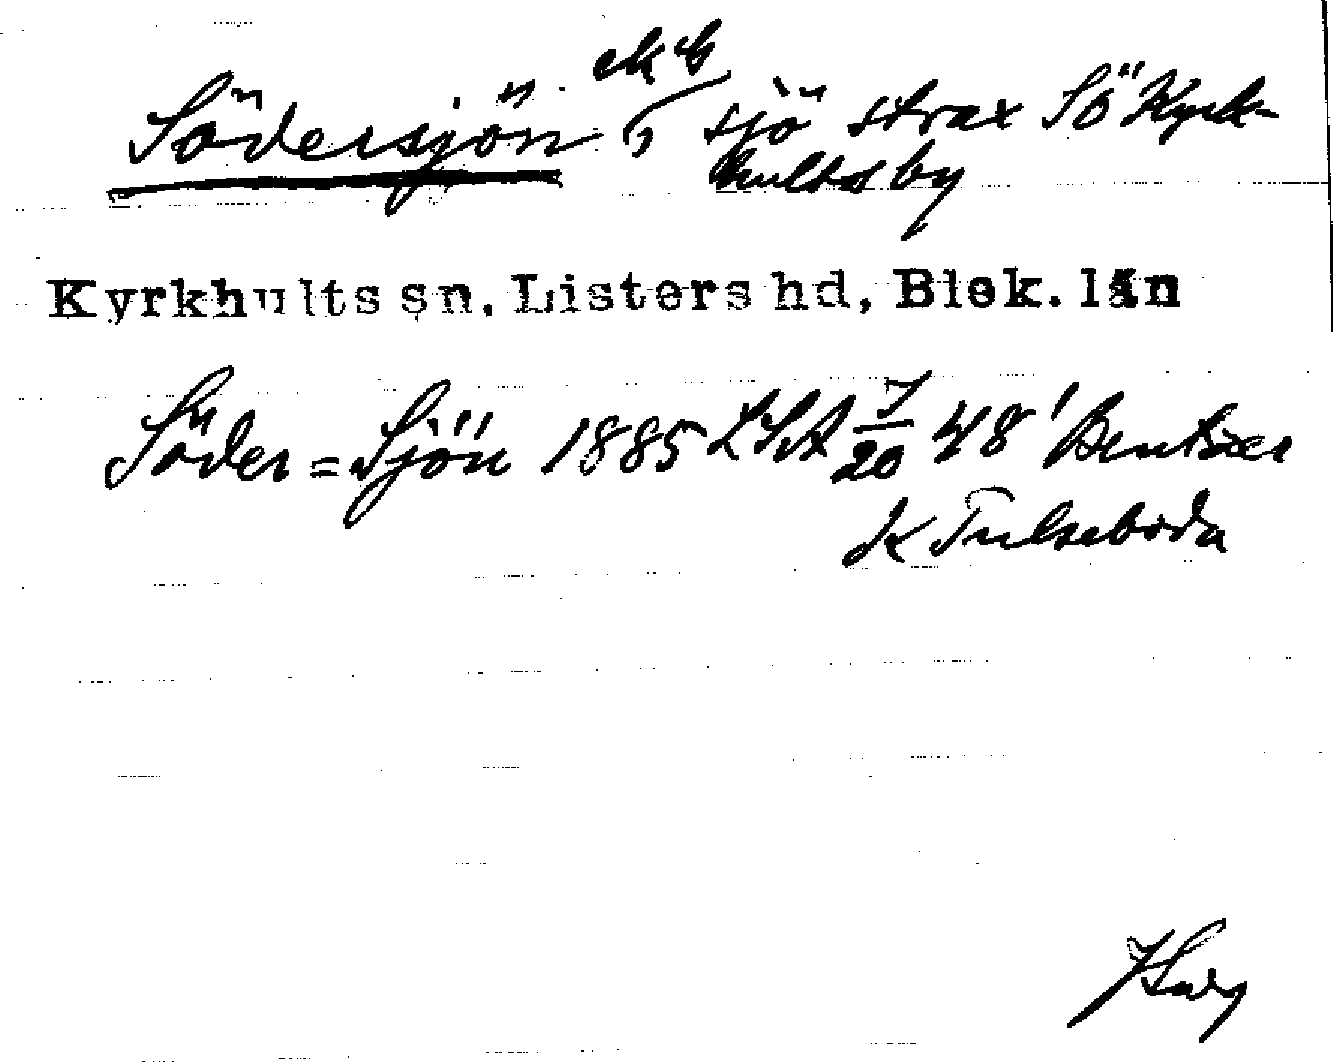 ek G
Södersjön, sjö strax SÖ Kyrk-
hults by
Kyrkhults sn, Listers hd, Blek. län
Söder=Sjön 1885 LSA 7/20 48'
K Tulseboda